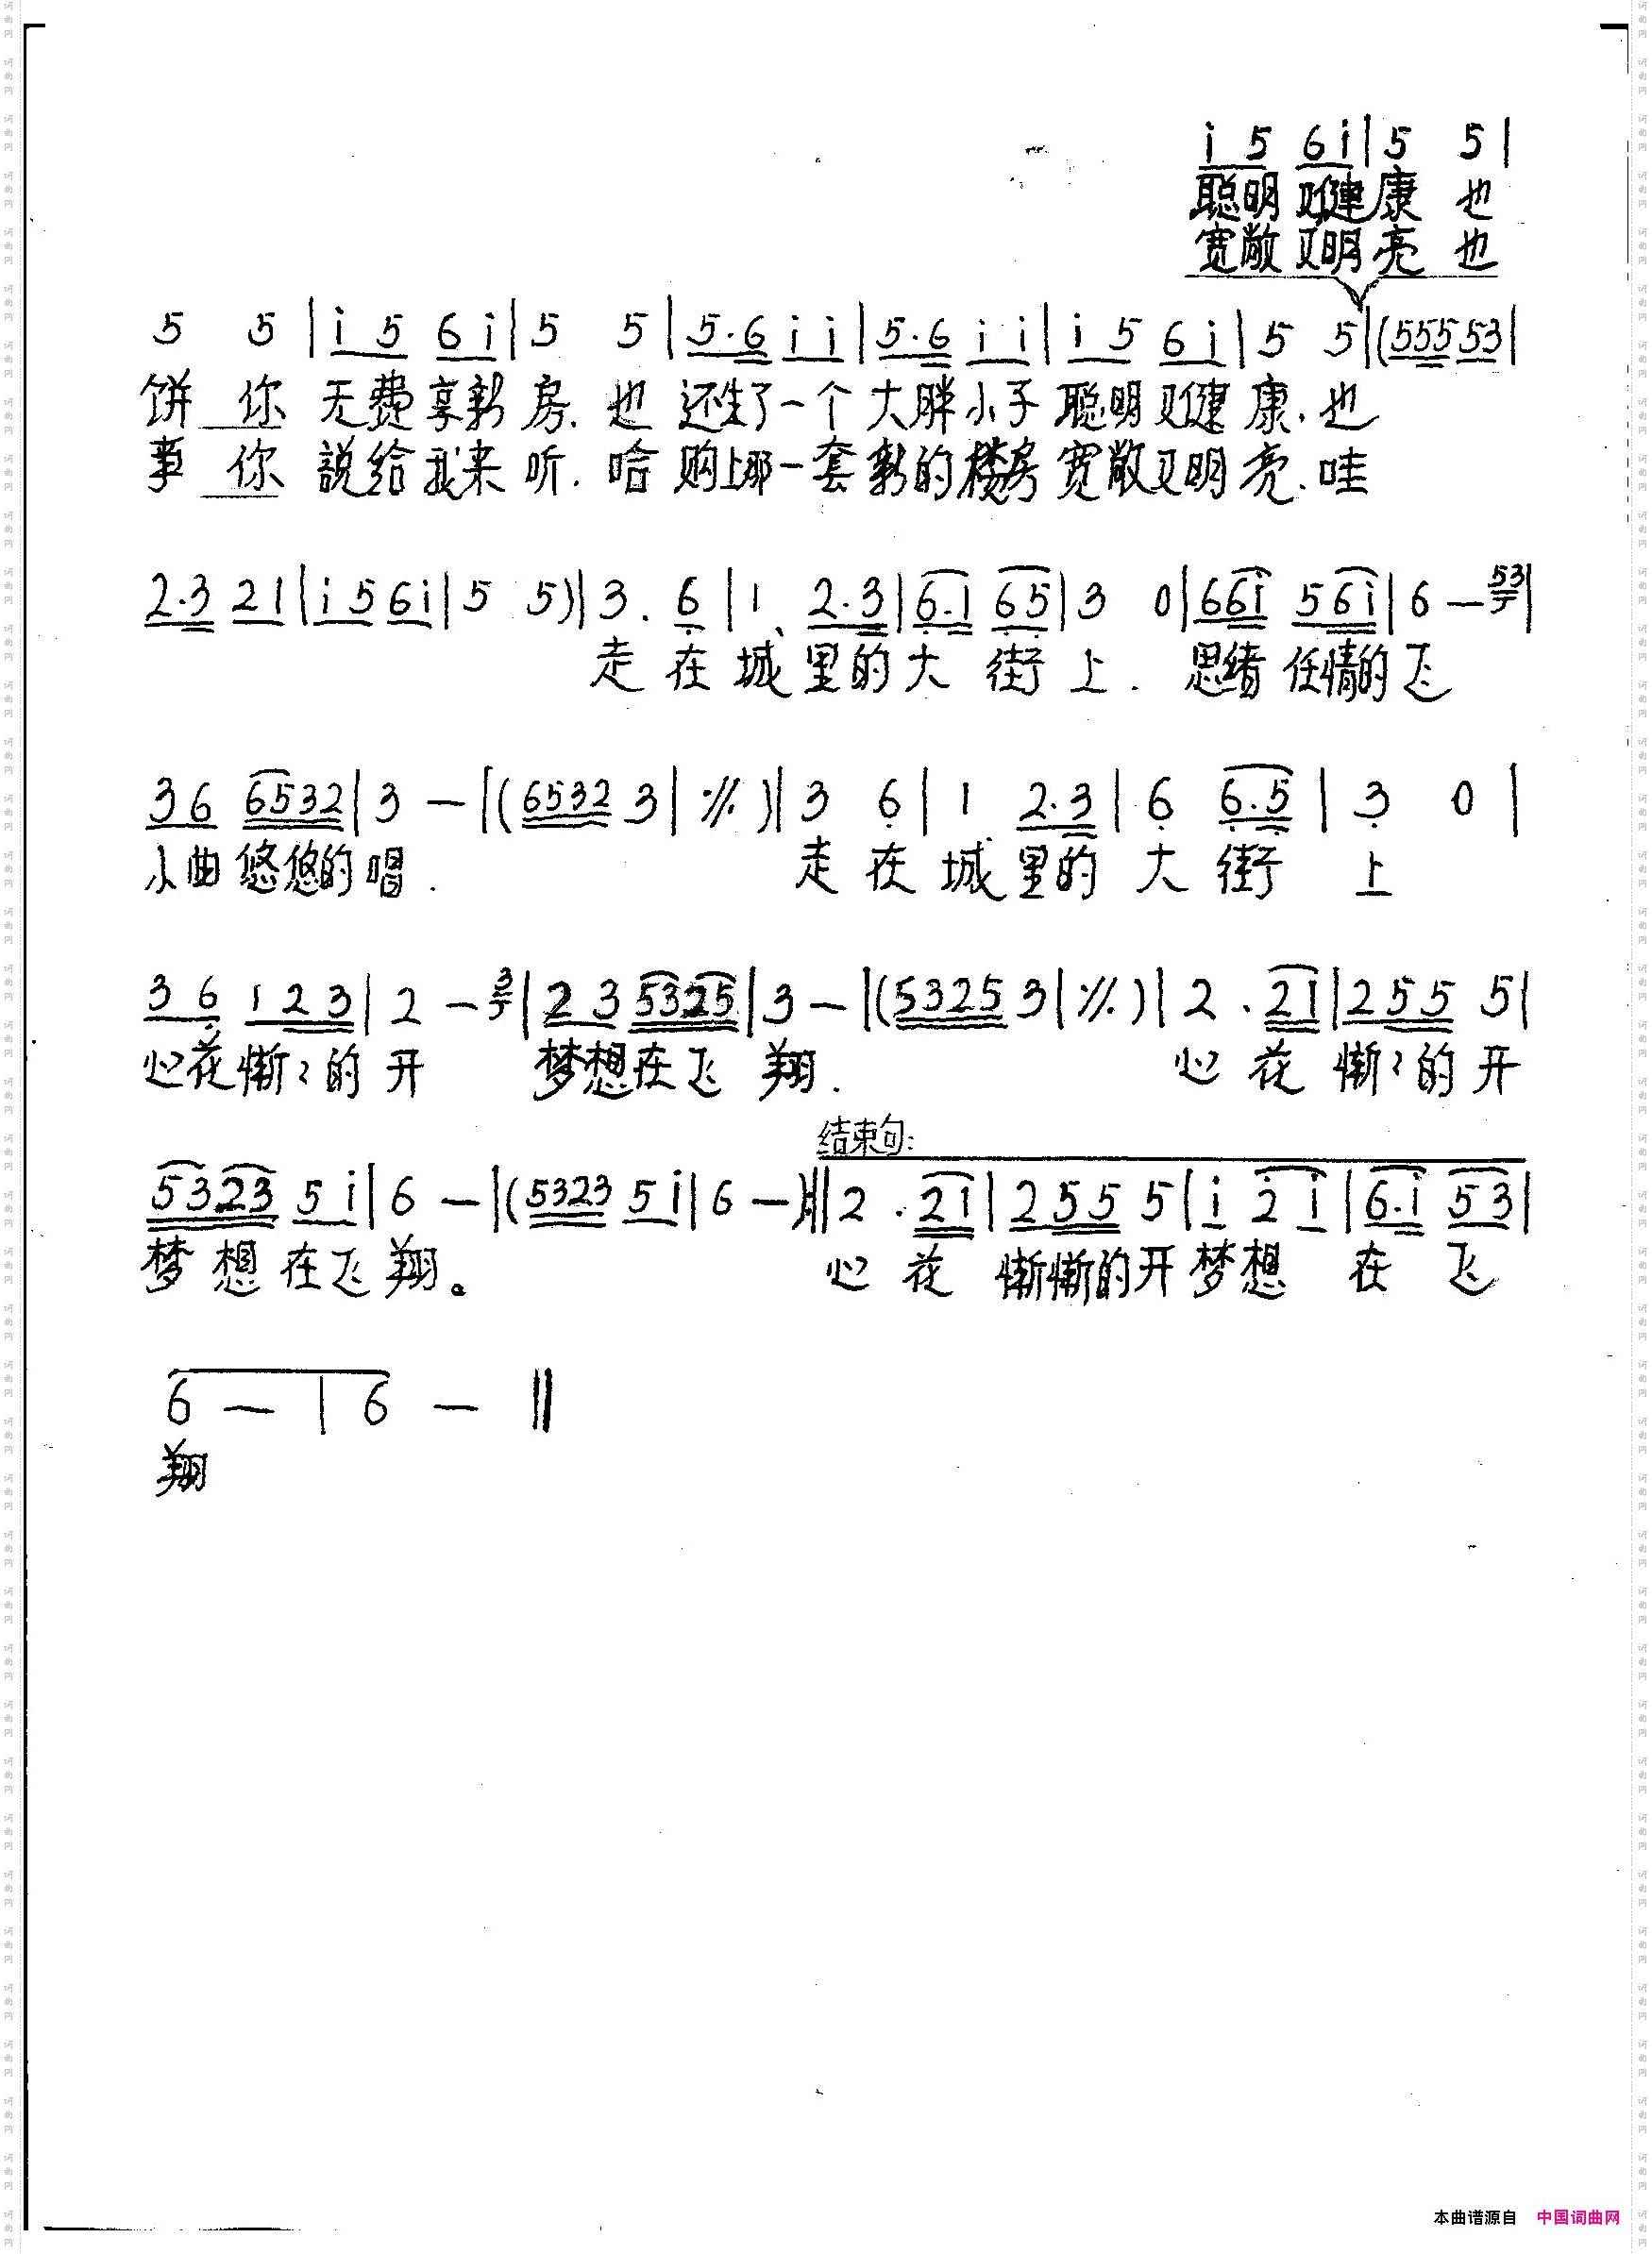 i 5 6 i | 5 5 |
聪明 又健康 也
宽敞 又明亮 也
5 5 | i 5 6 i | 5 5 | 5·6 i i | 5·6 i i | i 5 6 i | 5 5 | (555 53 |
饼 你 无费享新房. 也 还生了一个大胖小子聪明又健康. 也
事 你 説给我来听. 哈 购上那一套新的楼房宽敞又明亮. 哇
2·3 21 | i 5 6 i | 5 5) | 3. 6 | 1 2·3 | 6·1 65 | 3 0 | 66i 56i | 6 — 53 |
走在城里的大街上. 思绪任情的飞
36 6532 | 3 — | (6532 3 | ·//. ) | 3 6 | 1 2·3 | 6 6·5 | 3 0 |
小曲悠悠的唱. 走在城里的大街上
36 123 | 2 — 3 | 23 5325 | 3 — | (5325 3 | ·//. ) | 2 · 2i | 255 5 |
心花惭々的开 梦想在飞翔. 心花惭々的开
结束句:
5323 5i | 6 — | (5323 5i | 6 —) :‖ 2 · 2i | 255 5 | i 2 i | 6·i 53 |
梦想在飞翔。 心花惭惭的开梦想在飞
6 — | 6 — ‖
翔
本曲谱源自 中国词曲网